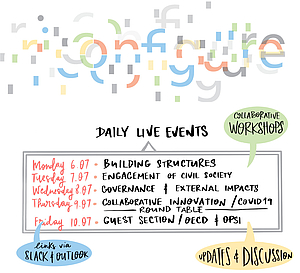 DAILY LIVE EVENTS
COLLABORATIVE
WORKSHOPS
Monday 6.07 - BUILDING STRUCTURES
Tuesday 7.07 - ENGAGEMENT OF CIVIL SOCIETY
Wednesday 8.07 - GOVERNANCE & EXTERNAL IMPACTS
Thursday 9.07 - COLLABORATIVE INNOVATION / COVID19
ROUND TABLE
Friday 10.07 - GUEST SECTION / OECD & OPSI
links via
SLACK & OUTLOOK
UPDATES & DISCUSSION